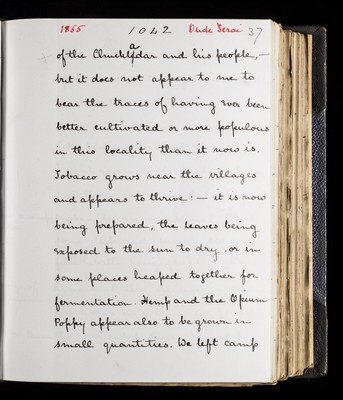 1855 1042 Dude Serai 37
of the Chuckledar and his people,—
but it does not appear to me to
bear the traces of having ever been
better cultivated or more populous
in this locality than it now is.
Tobacco grows near the villages
and appears to thrive:— it is now
being prepared, the leaves being
exposed to the sun to dry, or in
some places heaped together for
fermentation. Hemp and the Opium
Poppy appear also to be grown in
small quantities. We left camp